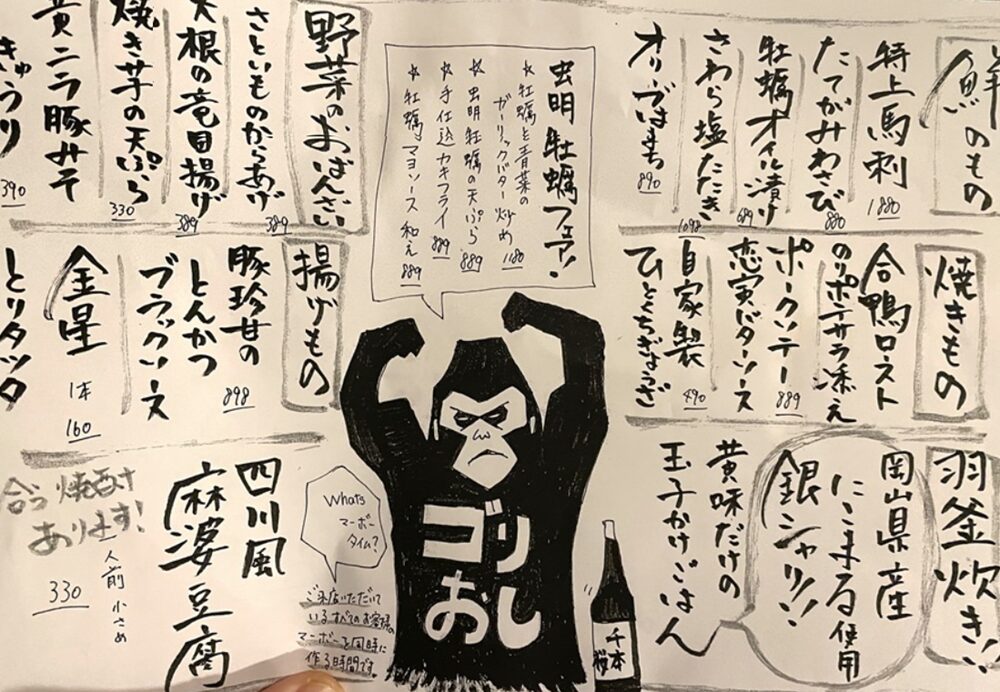 鮮のもの
特上馬刺 1880
たてがみわさび 880
牡蠣オイル漬け 689
さわら塩たたき 1098
オリーブはまち 890
虫明 牡蠣フェア!
☆牡蠣と青菜の
ガーリックバター炒め 1180
☆虫明牡蠣の天ぷら 889
☆手仕込カキフライ 889
☆牡蠣とマヨソース和え 889
野菜のおばんざい
さといものからあげ 389
大根の竜田揚げ 389
焼き芋の天ぷら 330
黄ニラ豚みそ
きゅうり 390
焼きもの
合鴨ロースト
のりポテサラ添え
ポークソテー 889
恋寅バターソース
自家製 490
ひとくちぎょうざ
揚げもの
豚珍甘の 898
とんかつ
ブラックソース
金星
1本
160
とりタツタ
羽釜炊き!
岡山県産
にこまる使用
銀シャリ!!
黄味だけの
玉子かけごはん
ゴリ
おし
千本
桜
Whats
マーボー
タイム?
ご来店いただいて
いるすべてのお客様の
マーボーを同時に
作る時間です。
四川風
麻婆豆腐
一人前 小さめ
330
合う焼酎
あります!